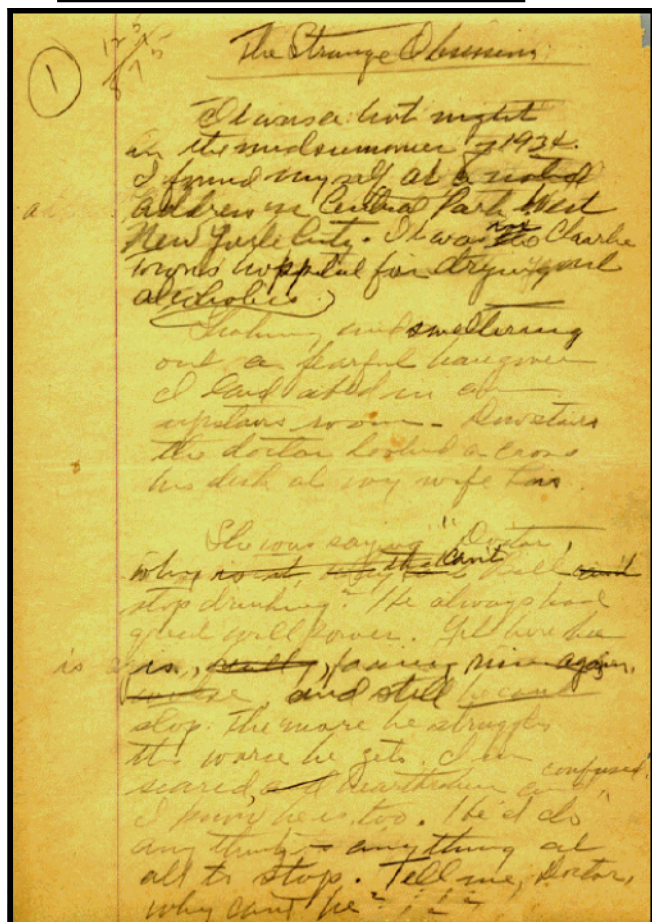 1
The Strange Obsession
It was a hot night
in the midsummer of 1934.
I found myself at a noted
address in Central Park West
New York City. It was Charlie
Towns hospital for drying out
alcoholics.
Shaking and sweltering
out a fearful hangover
I laid abed in an
upstairs room - Downstairs
the doctor looked across
his desk at my wife Lois.
She was saying "Doctor,
why can't Bill can't
stop drinking? He always had
great will power. Yet here he
is, ruin again,
and still he can't
stop. The more he struggles
the worse he gets. I'm
scared, and heartbroken and confused.
I know he is, too. He'd do
any thing - anything at
all to stop. Tell me, Doctor,
why can't he?